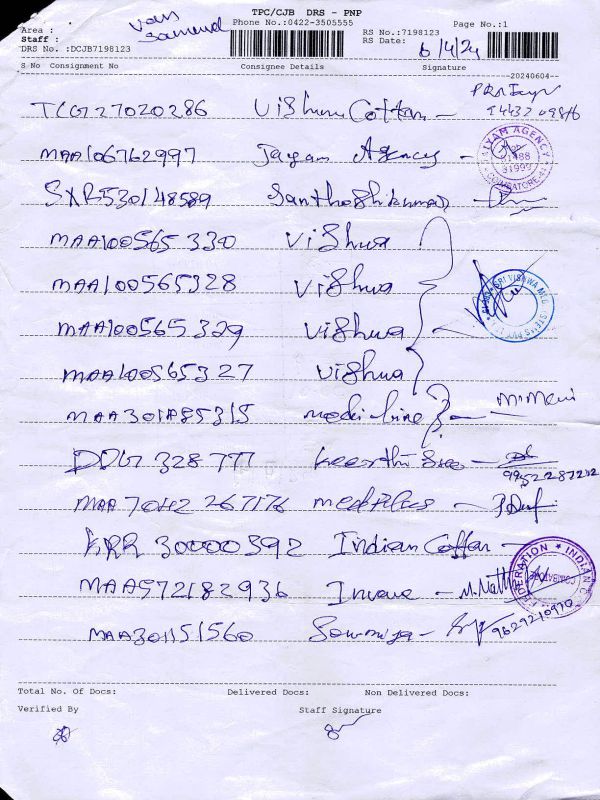 TPC/CJB DRS - PNP
Phone No.:0422-3505555
Page No.:1
Area :
Staff :
DRS No. :DCJB7198123
RS No.:7198123
RS Date: 6/4/24
S No Consignment No Consignee Details Signature
--20240604--
TCG27020286 Vishnu Cotton -
MAA106762997 Jayam Agency -
SXR530148589 Santhoshkumar
MAA100565330 Vishwa
MAA100565328 Vishwa
MAA100565329 Vishwa
MAA100565327 Vishwa
MAA301185315
DDG 328 777 Keerthi Sree - 9952287212
MAA 7042 267176 medplus -
KRR 30000392 Indian Cotton -
MAA572182936
MAA301151560 Sowmiya - 9629210970
Total No. Of Docs: Delivered Docs: Non Delivered Docs:
Verified By Staff Signature